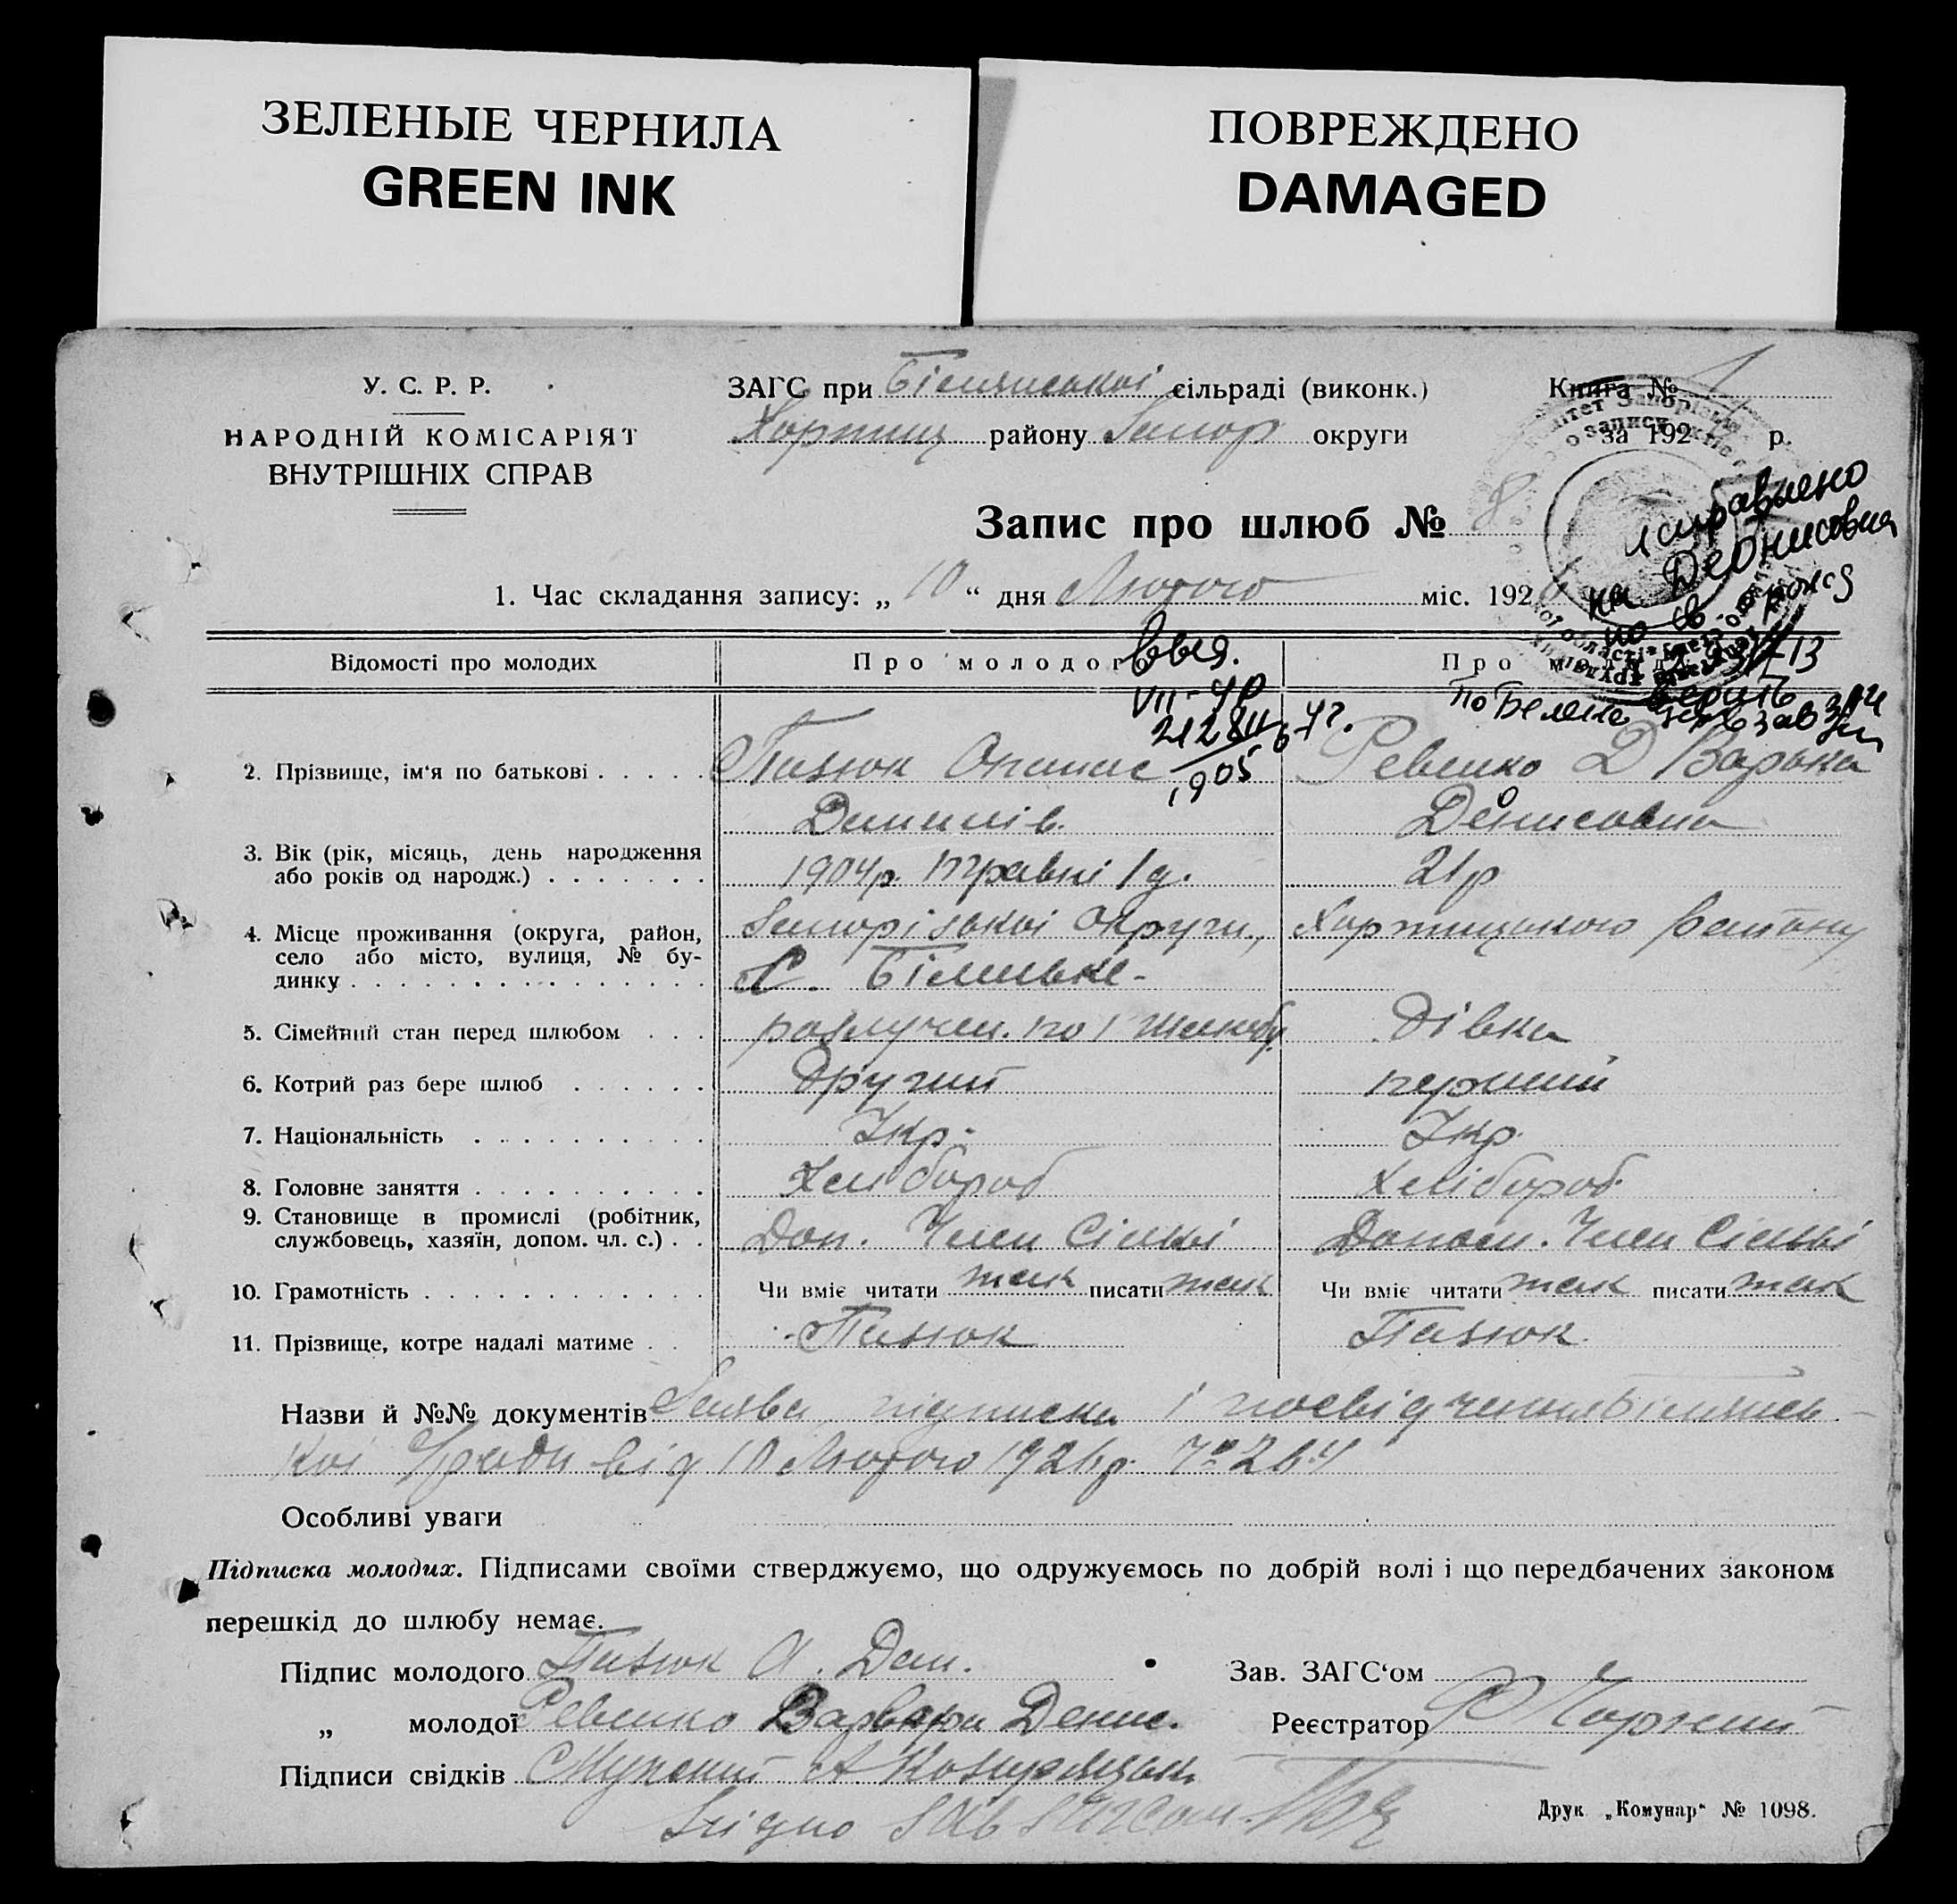 ЗЕЛЕНЫЕ ЧЕРНИЛА
GREEN INK
ПОВРЕЖДЕНО
DAMAGED
У. С. Р. Р.
НАРОДНІЙ КОМІСАРІЯТ
ВНУТРІШНІХ СПРАВ
ЗАГС при Білянської сільраді (виконк.)
Хортиц району Запор округи
Книга № 1
за 192 р.
Запис про шлюб № 8
исправлено
на Деонисовна
1. Час складання запису: „ 10 “ дня Лютого міс. 192
Відомості про молодих
Про молодого
выд.
VII-
1905
2. Прізвище, ім'я по батькові
Пазюк Опанас
Данилів.
Ревенко Д Варька
Денисовна
3. Вік (рік, місяць, день народження або років од народж.)
1904р. травні 1 д.
21р
4. Місце проживання (округа, район, село або місто, вулиця, № будинку
Запорізької Округи,
С. Біленьке-
Хортицького району
5. Сімейний стан перед шлюбом
розлучен. по 1 шлюбу
Дівка
6. Котрий раз бере шлюб
Другий
перший
7. Національність
Укр.
Укр.
8. Головне заняття
Хлібороб
Хлібороб.
9. Становище в промислі (робітник, службовець, хазяїн, допом. чл. с.)
Доп. Член Сімьї
Допом. Член Сімьї
10. Грамотність
Чи вміє читати так писати так
Чи вміє читати так писати так
11. Прізвище, котре надалі матиме
Пазюк
Пазюк.
Назви й №№ документів Заява підписка і посвідчення Білянсь-
кої С/ради від 10 Лютого 192 р. №
Особливі уваги
Підписка молодих. Підписами своїми стверджуємо, що одружуємось по добрій волі і що передбачених законом
перешкід до шлюбу немає.
Підпис молодого Пазюк О. Дан.
„ молодої Ревенко Варвари Денис.
Підписи свідків
Зав. ЗАГС'ом
Реєстратор
Згідно Зав ЗАГСом.
Друк „Комунар“ № 1098.